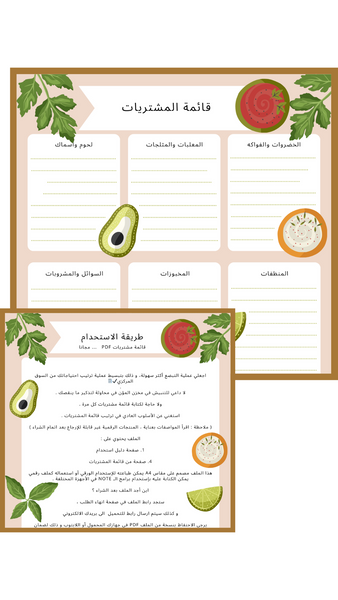 قائمة المشتريات
الخضروات والفواكه
المعلبات والمثلجات
لحوم وأسماك
المنظفات
المخبوزات
السوائل والمشروبات
طريقة الاستخدام
قائمة مشتريات PDF ... مجانا
اجعلي عملية التبضع أكثر سهولة، و ذلك بتبسيط عملية ترتيب احتياجاتك من السوق
المركزي✔
لا داعي للتفتيش في مخزن المؤن في محاولة لتذكير ما ينقصك .
ولا حاجة لكتابة قائمة مشتريات كل مرة .
استغني عن الأسلوب العادي في ترتيب قائمة المشتريات .
( ملاحظة : اقرأ المواصفات بعناية .. المنتجات الرقمية غير قابلة للإرجاع بعد اتمام الشراء )
الملف يحتوي على :
1. صفحة دليل استخدام
4. صفحة من قائمة المشتريات
هذا الملف مصمم على مقاس A4 يمكن طباعته للإستخدام الورقي أو استعماله كملف رقمي
يمكن الكتابة عليه بإستخدام برامج الـ NOTE في الأجهزة المختلفة .
اين أجد الملف بعد الشراء ؟
ستجد رابط الملف في صفحة انهاء الطلب .
و كذلك سيتم ارسال رابط للتحميل الى بريدك الالكتروني
يرجى الاحتفاظ بنسخة من الملف PDF في جهازك المحمول أو اللابتوب و ذلك لضمان